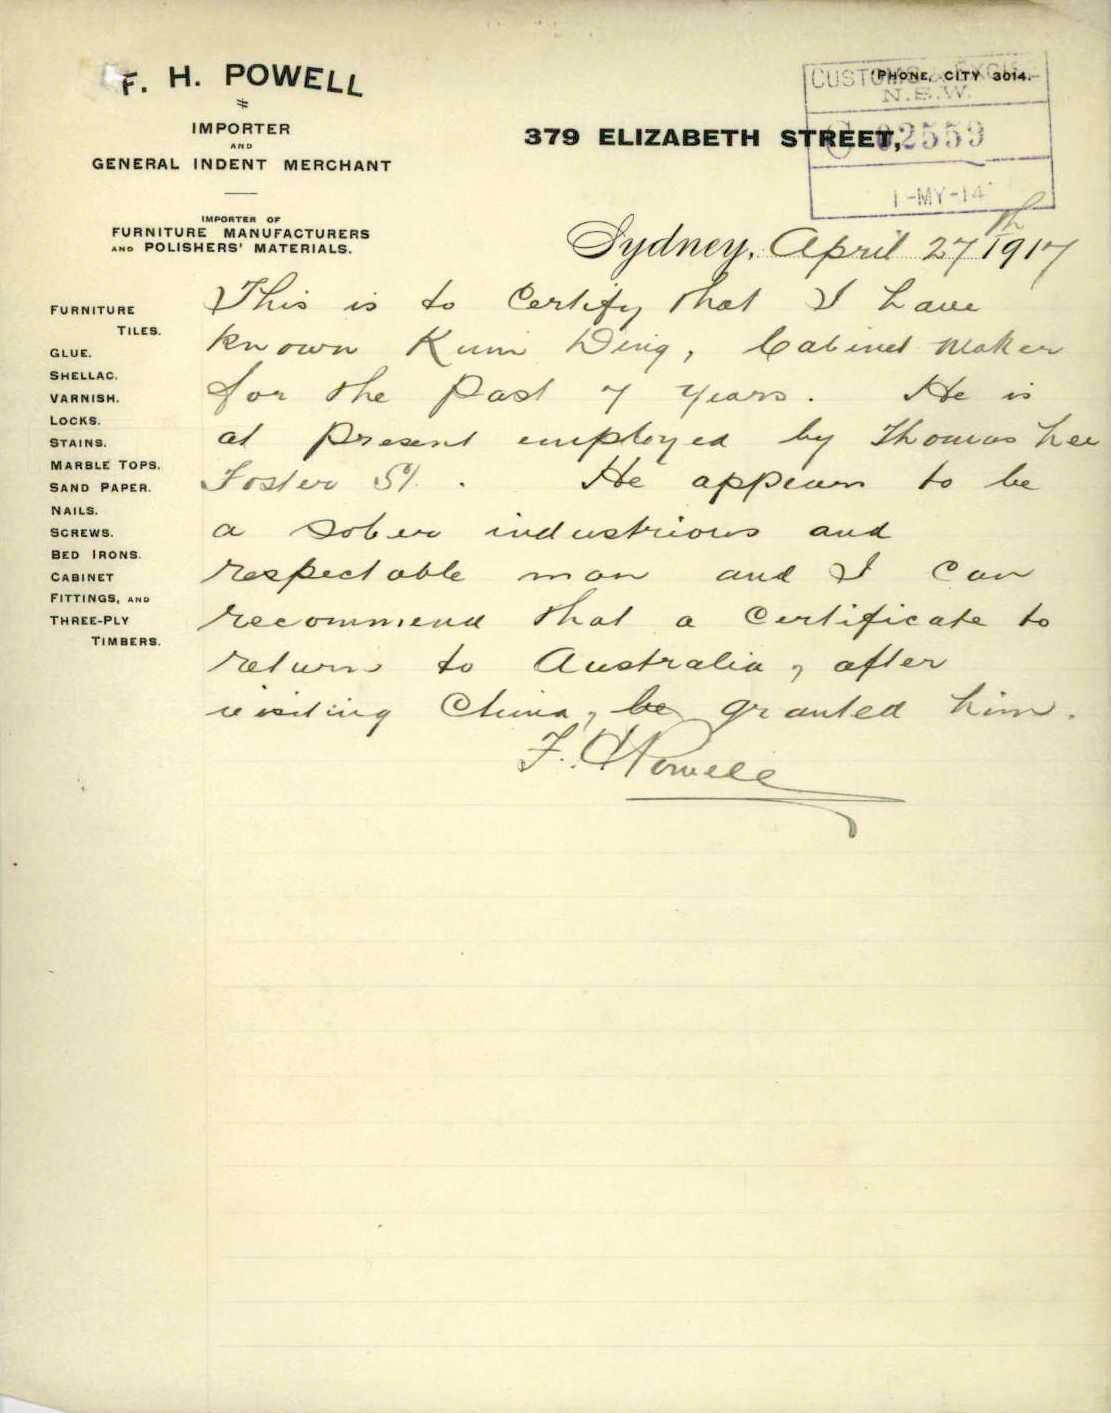 F. H. POWELL
IMPORTER
AND
GENERAL INDENT MERCHANT
IMPORTER OF
FURNITURE MANUFACTURERS
AND POLISHERS' MATERIALS.
'PHONE, CITY 3014.
379 ELIZABETH STREET,
CUSTOMS & EXCISE
N.S.W.
C 02559
1-MY-14
Sydney, April 27th 1917
FURNITURE
TILES.
GLUE.
SHELLAC.
VARNISH.
LOCKS.
STAINS.
MARBLE TOPS.
SAND PAPER.
NAILS.
SCREWS.
BED IRONS.
CABINET
FITTINGS, AND
THREE-PLY
TIMBERS.
This is to Certify that I have
known Kum Ding, Cabinet Maker
for the Past 7 years. He is
at present employed by Thomas Lee
Foster St. He appears to be
a sober industrious and
respectable man and I can
recommend that a Certificate to
return to Australia, after
visiting China, be granted him.
F. H Powell